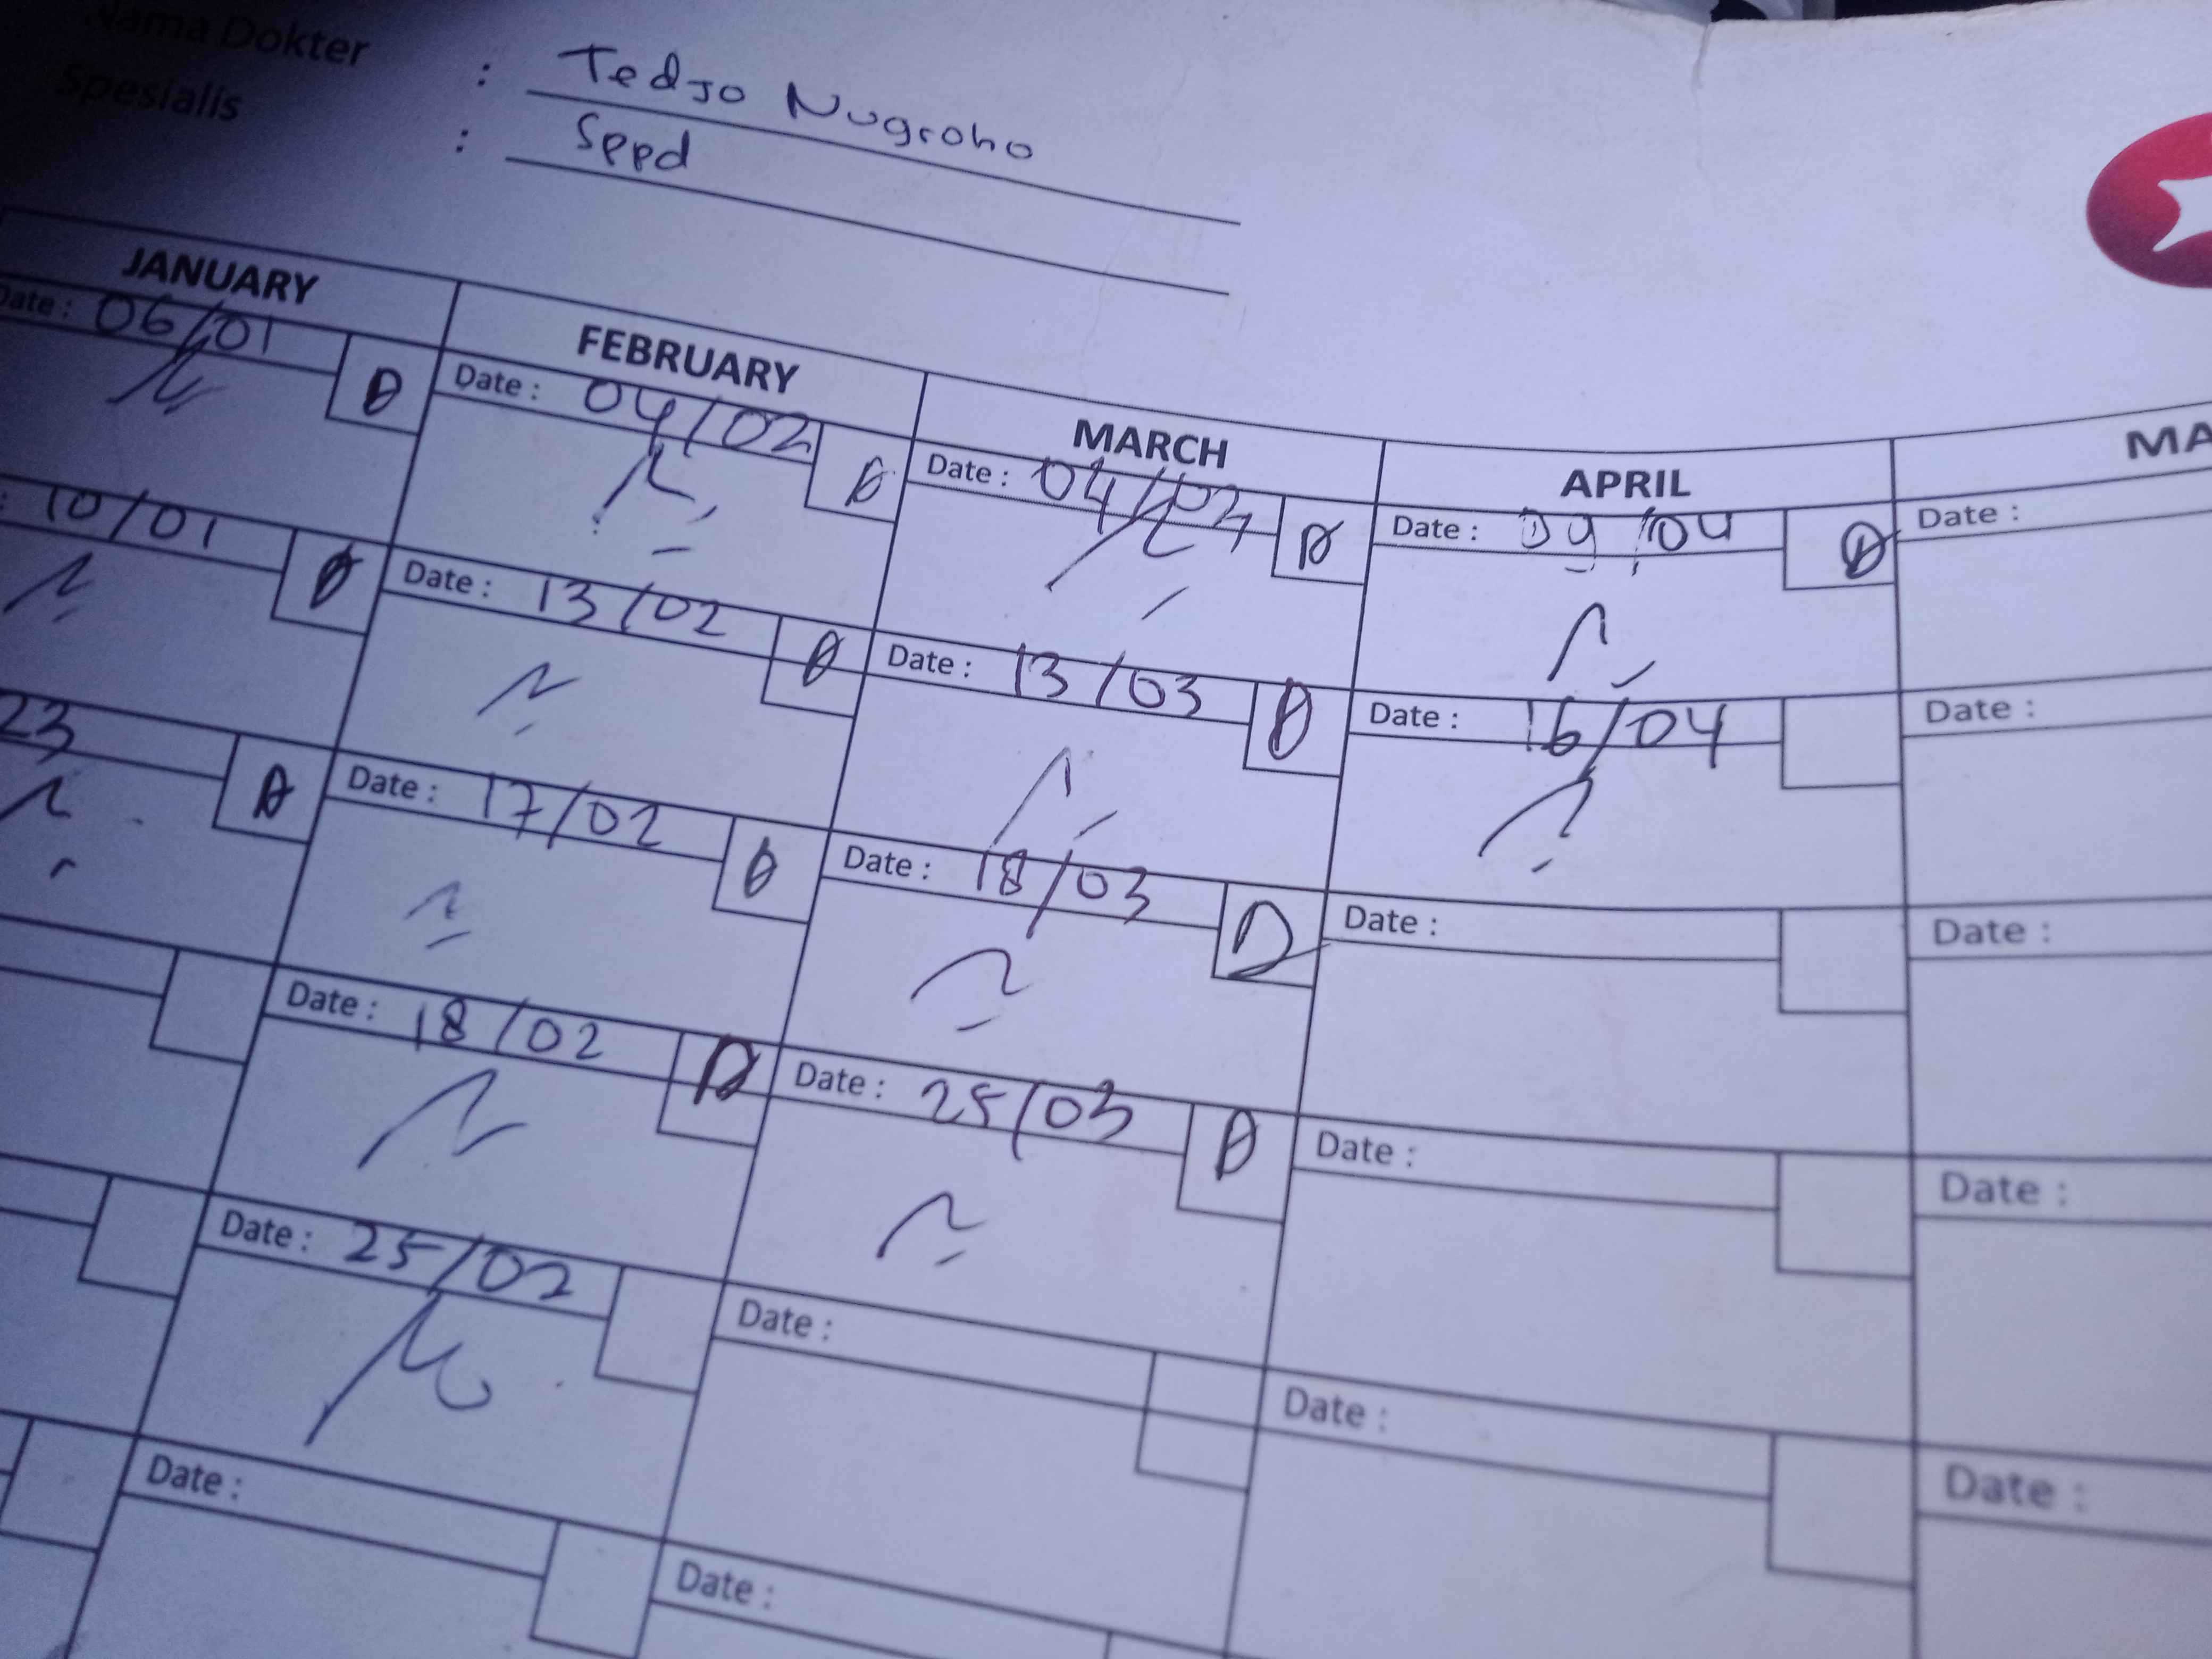 Nama Dokter : Tedjo Nugroho
Spesialis : Sppd
JANUARY FEBRUARY MARCH APRIL MA
Date : 06/01 Date : 04/02 Date : 04/03 Date : 09/04 Date :
: 10/01 Date : 13/02 Date : 13/03 Date : 16/04 Date :
23 Date : 17/02 Date : 18/03 D Date : Date :
Date : 18/02 Date : 25/03 Date : Date :
Date : 25/02 Date : Date : Date :
Date : Date :